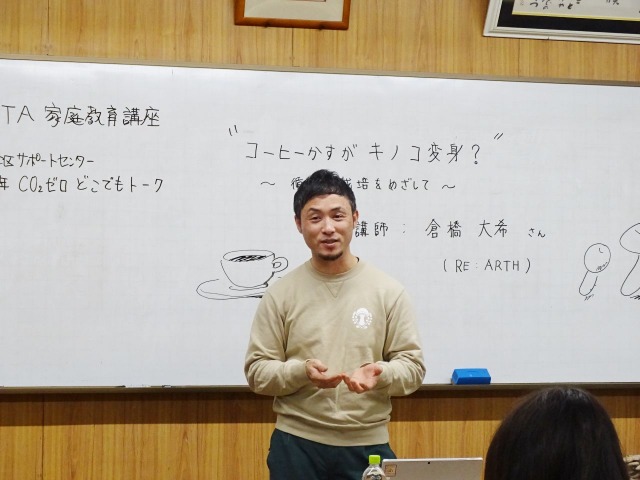 TA 家庭教育講座
サポートセンター
CO₂ゼロ どこでもトーク
"コーヒーかすが キノコ変身？"
～ 栽培をめざして ～
講師： 倉橋 大希 さん
（RE：ARTH）